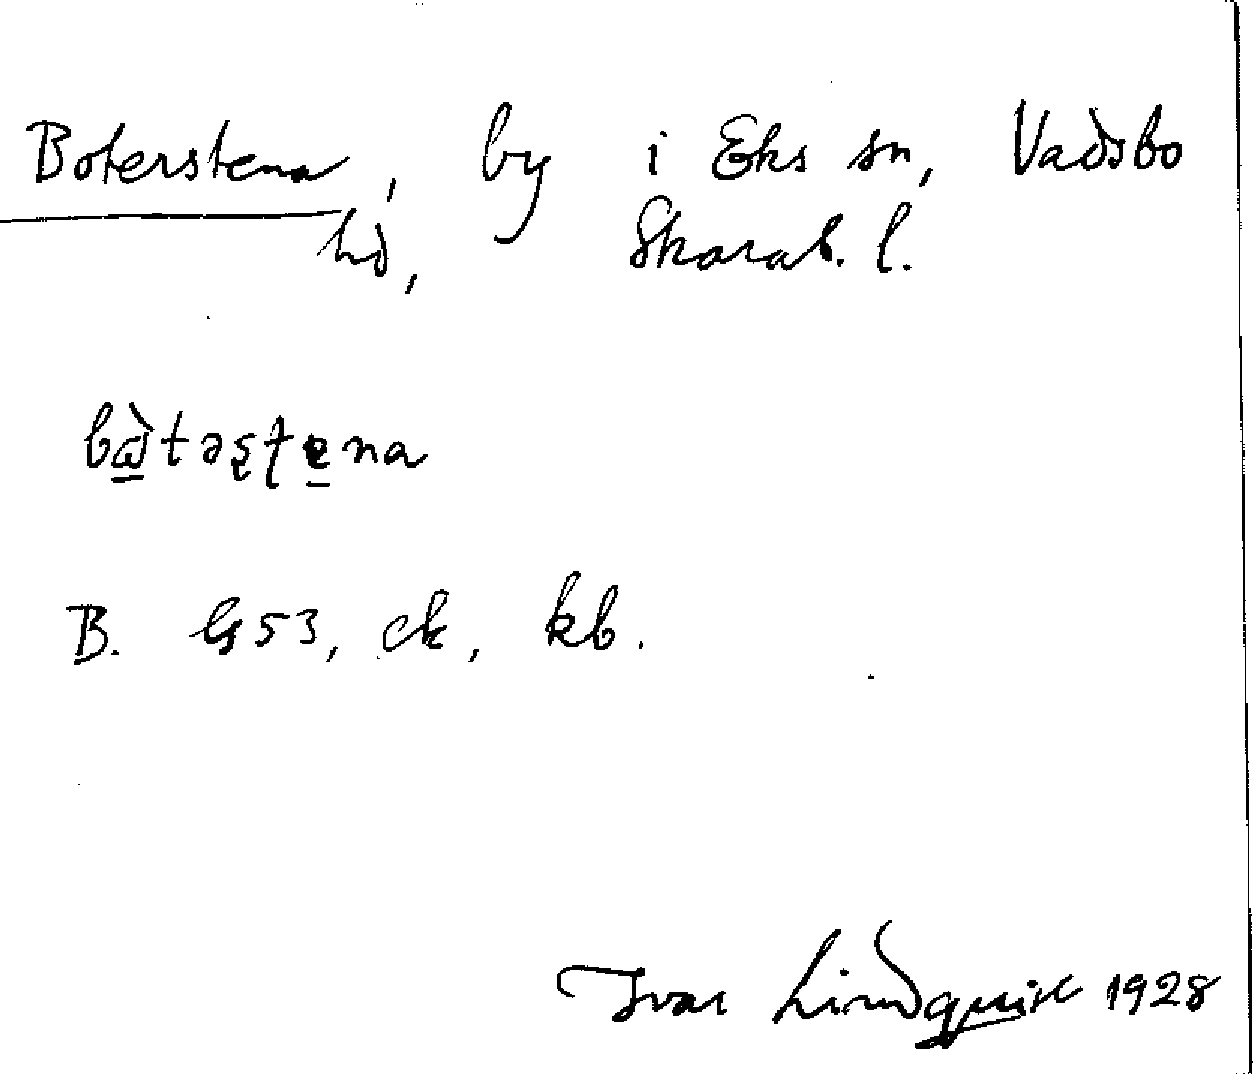 Boterstena, by i Eks sn, Vadsbo
hd, Skarab. l.
bɷ̠̀təʂʈe̠na
B. G53, ck, kb.
Ivar Lindquist 1928